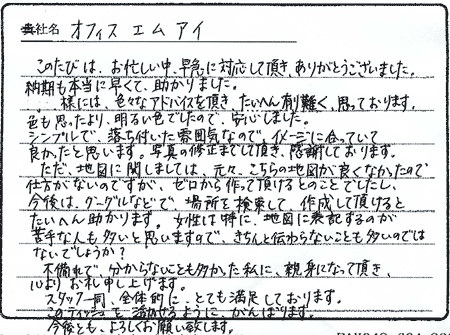 貴社名 オフィス エム アイ
このたびは、お忙しい中、早急に対応して頂き、ありがとうございました。
納期も本当に早くて、助かりました。
様には、色々なアドバイスを頂き、たいへん有難く、思っております。
色も思ったより、明るい色でしたので、安心しました。
シンプルで、落ち付いた雰囲気なので、イメージに合っていて
良かったと思います。写真の修正までして頂き、感謝しております。
ただ、地図に関しましては、元々、こちらの地図が良くなかったので
仕方がないのですが、ゼロから作って頂けるとのことでしたし、
今後は、グーグルなどで、場所を検索して、作成して頂けると
たいへん助かります。女性は特に、地図に表記するのが
苦手な人も多いと思いますので、きちんと伝わらないことも多いのでは
ないでしょうか?
不慣れで、分からないことも多かった私に、親身になって頂き、
心よりお礼申し上げます。
スタッフ一同、全体的に、とても満足しております。
このティッシュを活かせるように、がんばります。
今後とも、よろしくお願い致します。